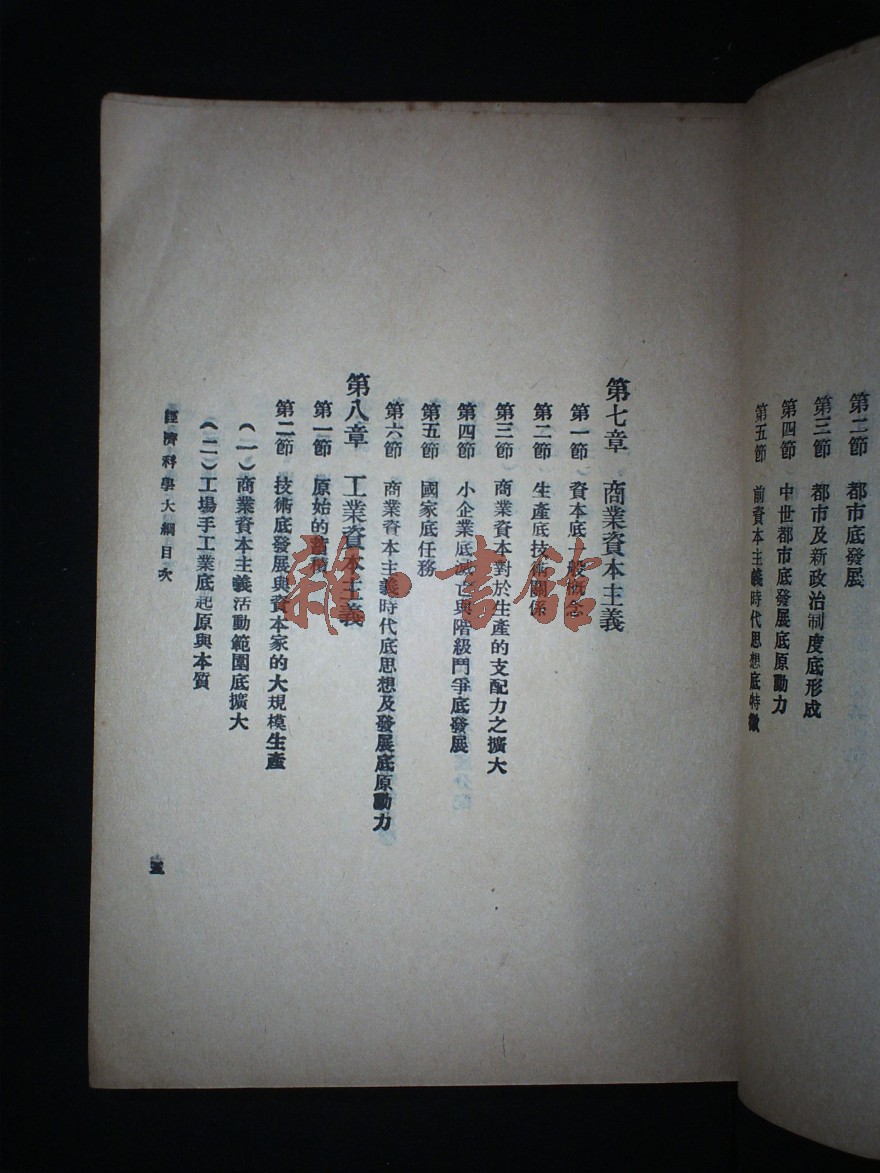 第二節　都市底發展
第三節　都市及新政治制度底形成
第四節　中世都市底發展底原動力
第五節　前資本主義時代思想底特徵
第七章　商業資本主義
第一節　資本底一般概念
第二節　生產底技術關係
第三節　商業資本對於生產的支配力之擴大
第四節　小企業底滅亡與階級鬥爭底發展
第五節　國家底任務
第六節　商業資本主義時代底思想及發展底原動力
第八章　工業資本主義
第一節　原始的蓄積
第二節　技術底發展與資本家的大規模生產
（一）商業資本主義活動範圍底擴大
（二）工場手工業底起原與本質
經濟科學大綱目次
五
雜·書館